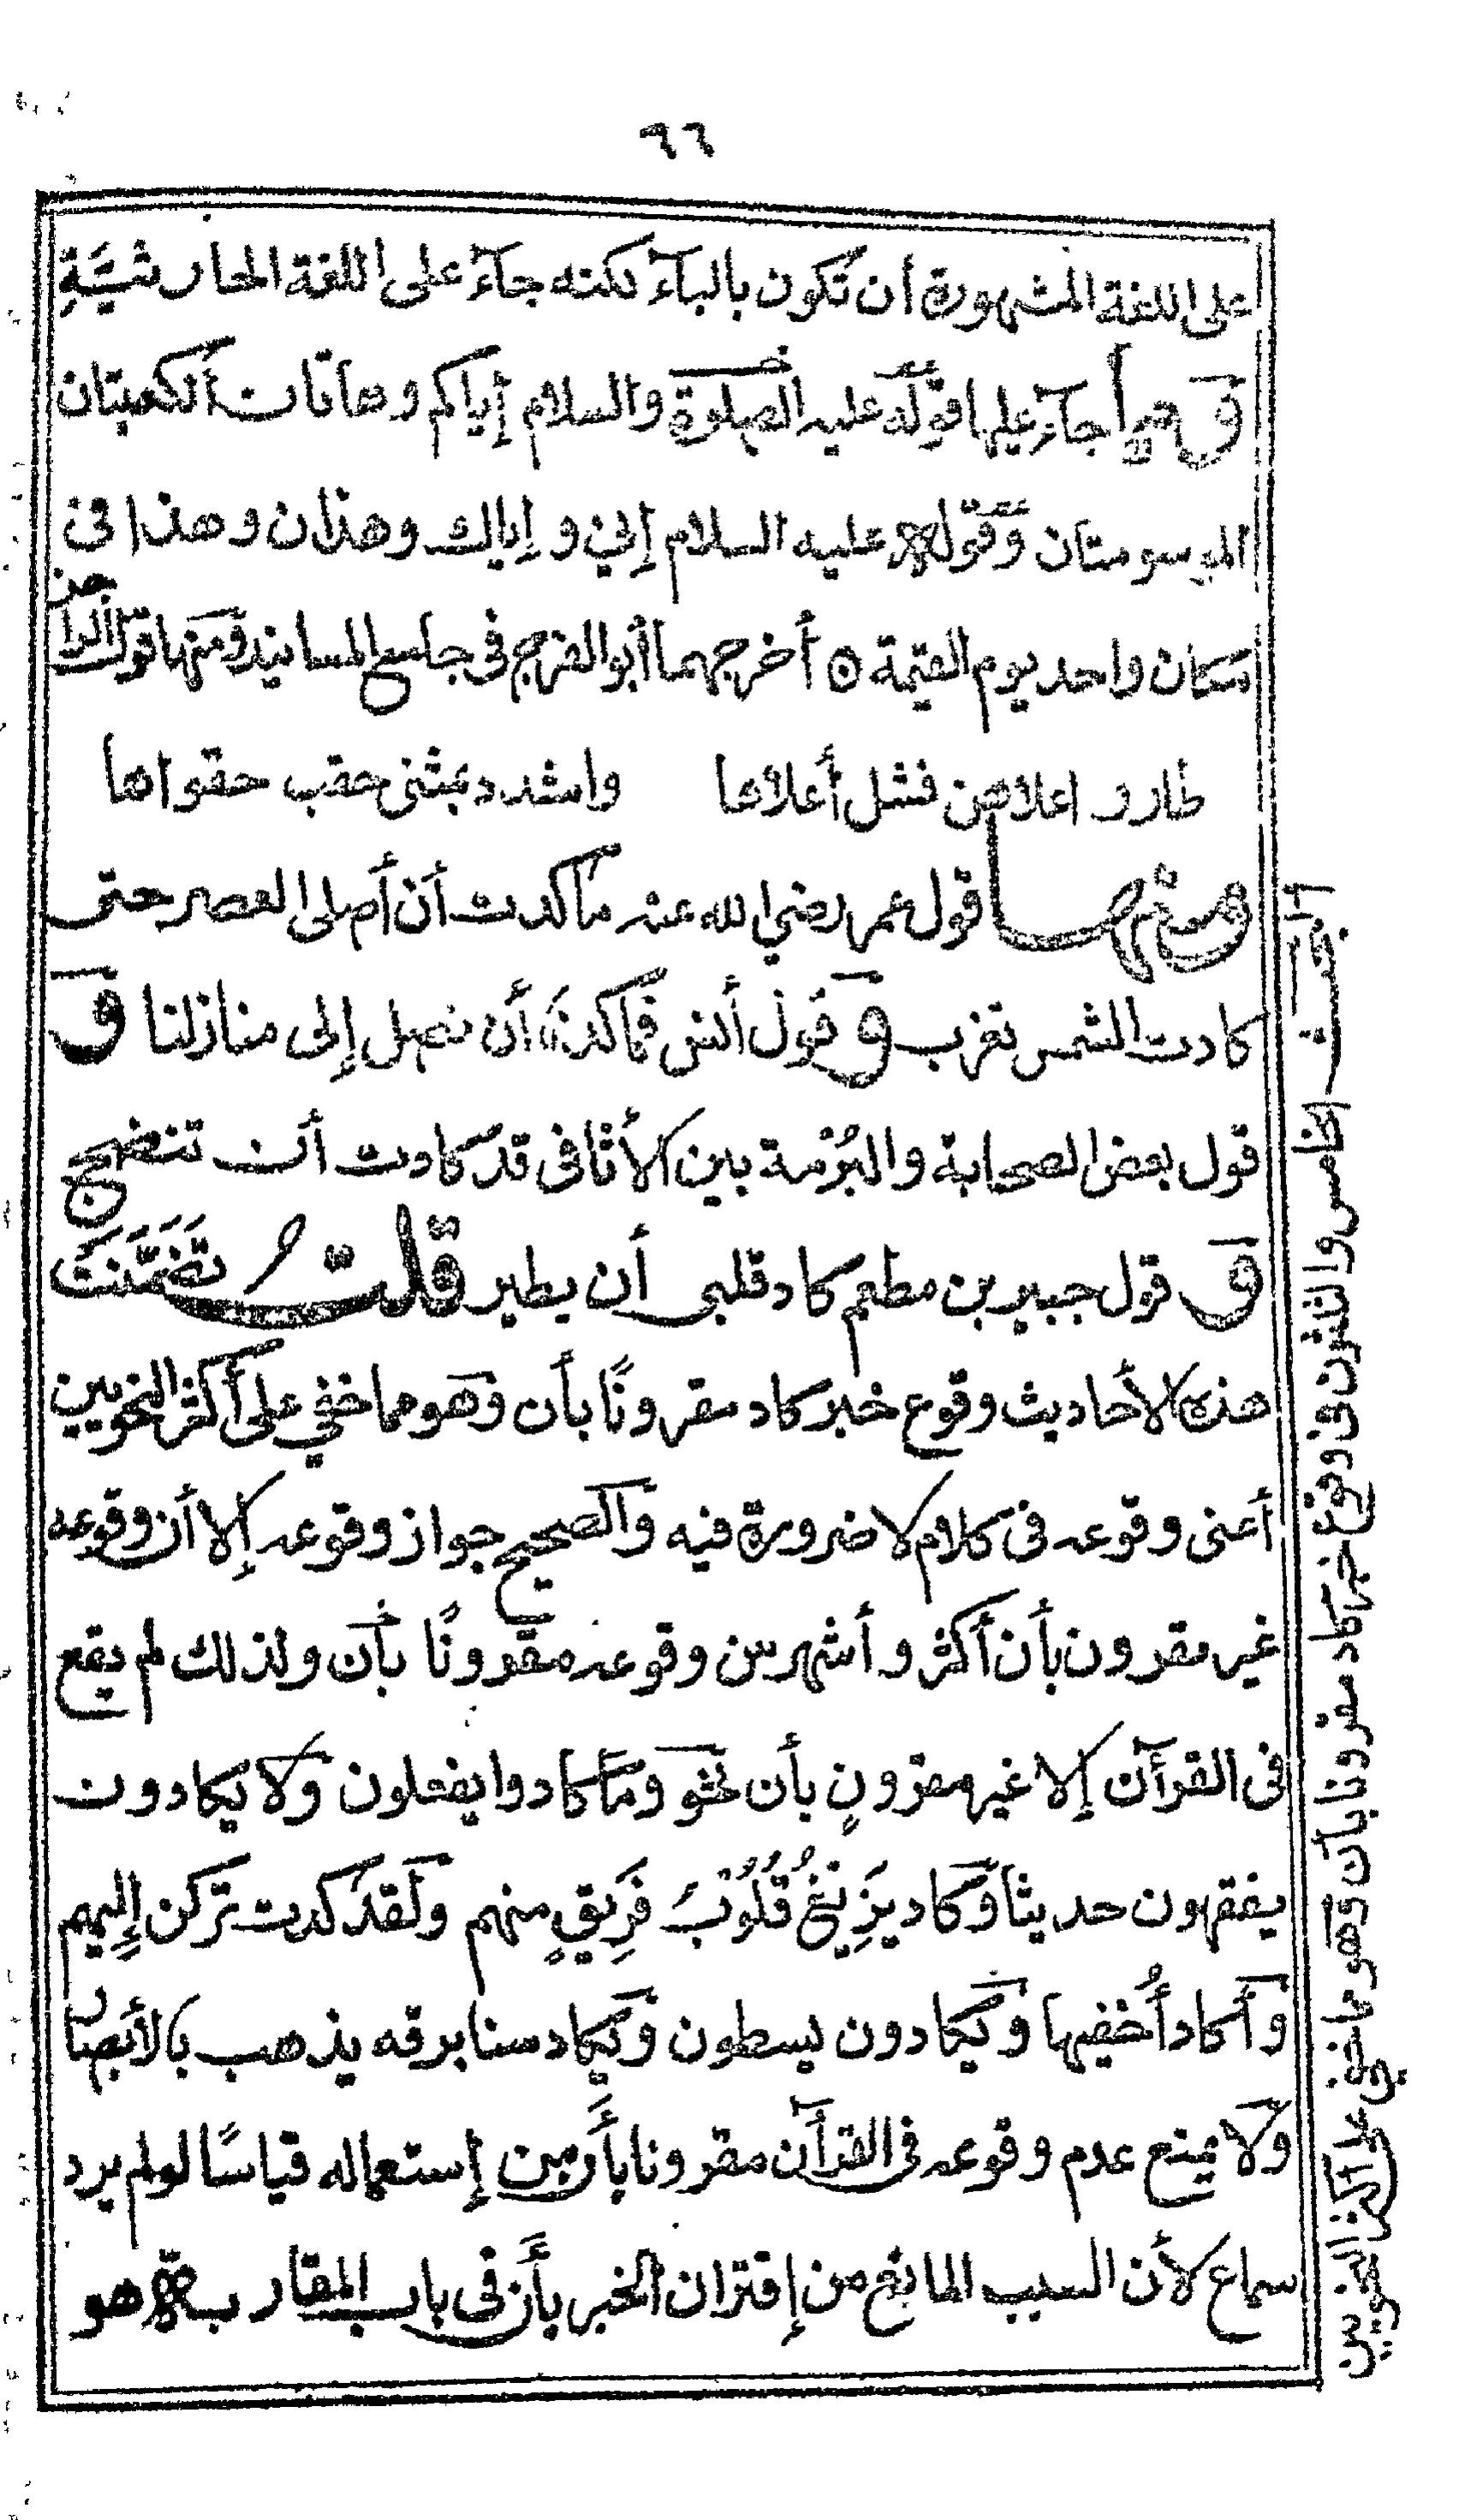 ٦٦
على اللغة المشهورة أن تكون بالبآء لكنه جآء على اللغة الحارثيَّةِ
ومما جآء عليها قوله عليه الصلوة والسلام إياكم وهاتان الكعبتان
الموسومتان وقوله عليه السلام إني وإياك وهذان وهذا في
مكان واحد يوم القيمة ٥ أخرجهما أبو الفرج في جامع المسانيد ومنها قول الراجز
طاروا علاهن فشل أعلاها واشدد بمثنى حقب حقواها
ومنها قول عمر رضي الله عنه ما كدت أن أصلى العصر حتى
كادت الشمس تغرب و قول أنس فما كدنا أن نصل إلى منازلنا و
قول بعض الصحابة والبُرْمة بين الأثافى قد كادت أن تنضج
و قول جبير بن مطعم كاد قلبى أن يطير قلت تضمَّنَتْ
هذه الأحاديث وقوع خبر كاد مقرونًا بأن وهو مما خفي على أكثر النحويين
أعنى وقوعه فى كلام لا ضرورة فيه والصحيح جواز وقوعه إلا أن وقوعه
غير مقرون بأن أكثر وأشهر من وقوعه مقرونًا بأن ولذلك لم يقع
فى القرآن إلا غير مقرونٍ بأن نحو وما كادوا يفعلون ولا يكادون
يفقهون حديثا وكاد يَزِيْغُ قُلُوْبُ فَرِيقٍ منهم ولقد كدت تركن إليهم
وأكاد أُخفيها ويكادون يسطون ويكاد سنا برقه يذهب بالأبصار
ولا يمنع عدم وقوعه فى القرآن مقرونا بأن من إستعماله قياسًا لو لم يرد
سماع لأن السبب المانع من إقتران الخبر بأن فى باب المقاربة هو
البحث الخامس والعشرون فى وقوع خبر كاد مقرونا بأن وهو مما خفي على أكثر النحويين